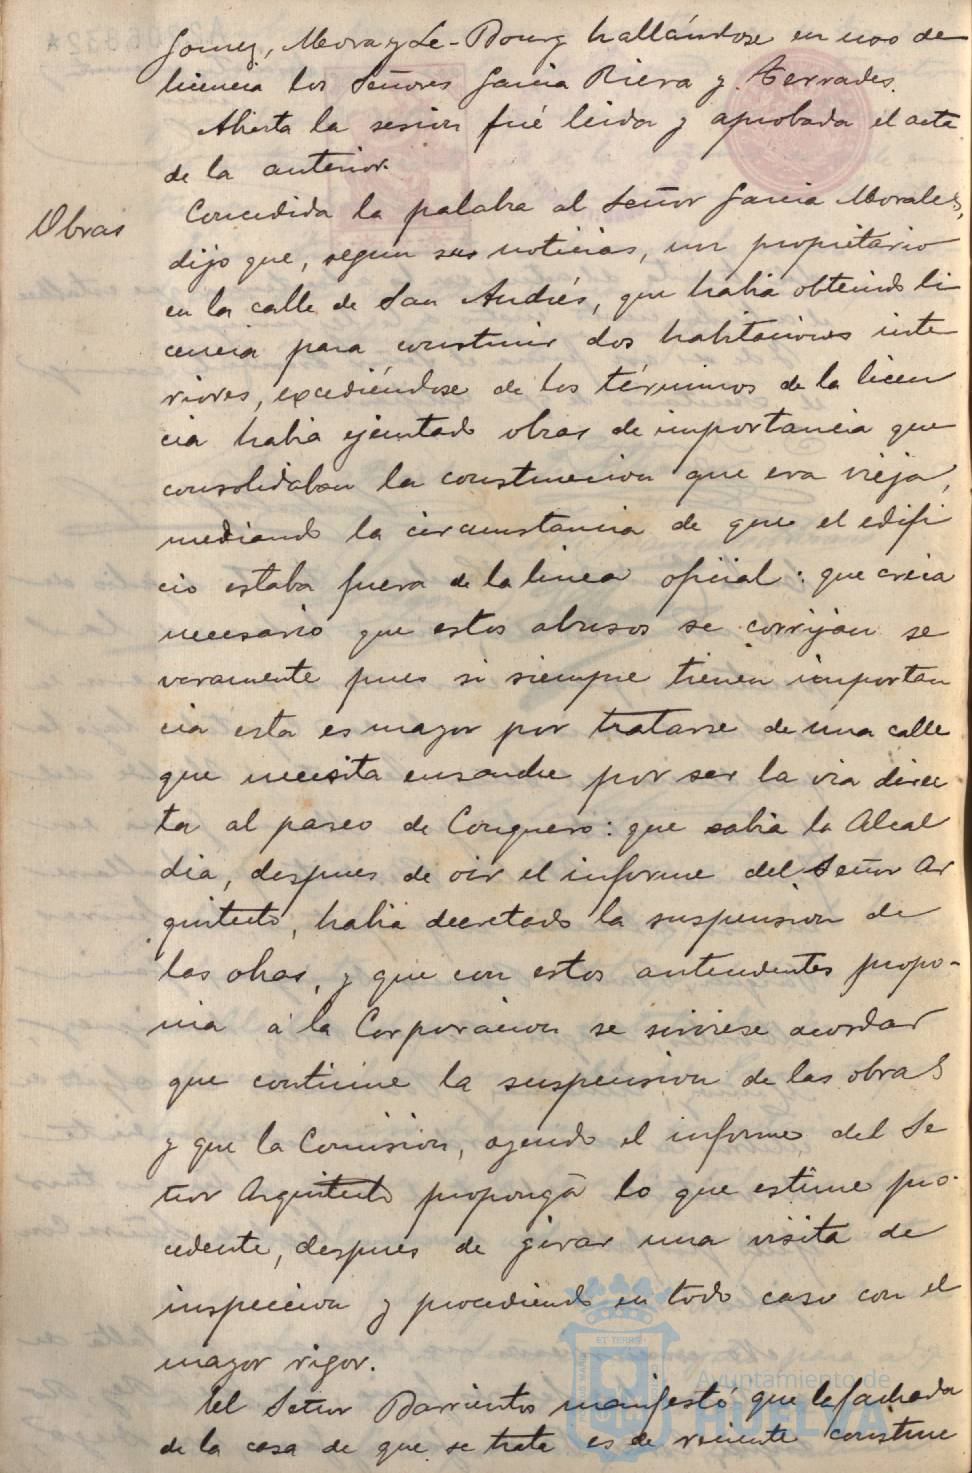 Gomez, Mora y Le-Bourg hallándose en uso de
licencia los Señores Garcia Riera y Terrades.
Abierta la sesion fué leida y aprobada el acta
de la anterior.
Obras
Concedida la palabra al Señor Garcia Morales,
dijo que, segun sus noticias, un propietario
en la calle de San Andrés, que habia obtenido li
cencia para construir dos habitaciones inte
riores, excediéndose de los términos de la licen
cia habia ejecutado obras de importancia que
consolidaban la construccion que era vieja,
mediando la circunstancia de que el edifi
cio estaba fuera de la linea oficial: que creia
necesario que estos abusos se corrijan se
veramente pues si siempre tienen importan
cia esta es mayor por tratarse de una calle
que necesita ensanche por ser la via direc
ta al paseo de Conquero: que sabia la Alcal
dia, despues de oir el informe del Señor Ar
quitecto, habia decretado la suspension de
las obras, y que con estos antecedentes propo-
nia á la Corporacion se sirviese acordar
que continue la suspension de las obras
y que la Comision, oyendo el informe del Se
ñor Arquitecto proponga lo que estime pro-
cedente, despues de girar una visita de
inspeccion y procediendo en todo caso con el
mayor rigor.
El Señor Barrientos manifestó que la fachada
de la casa de que se trata es de reciente construc
Ayuntamiento de
HUELVA